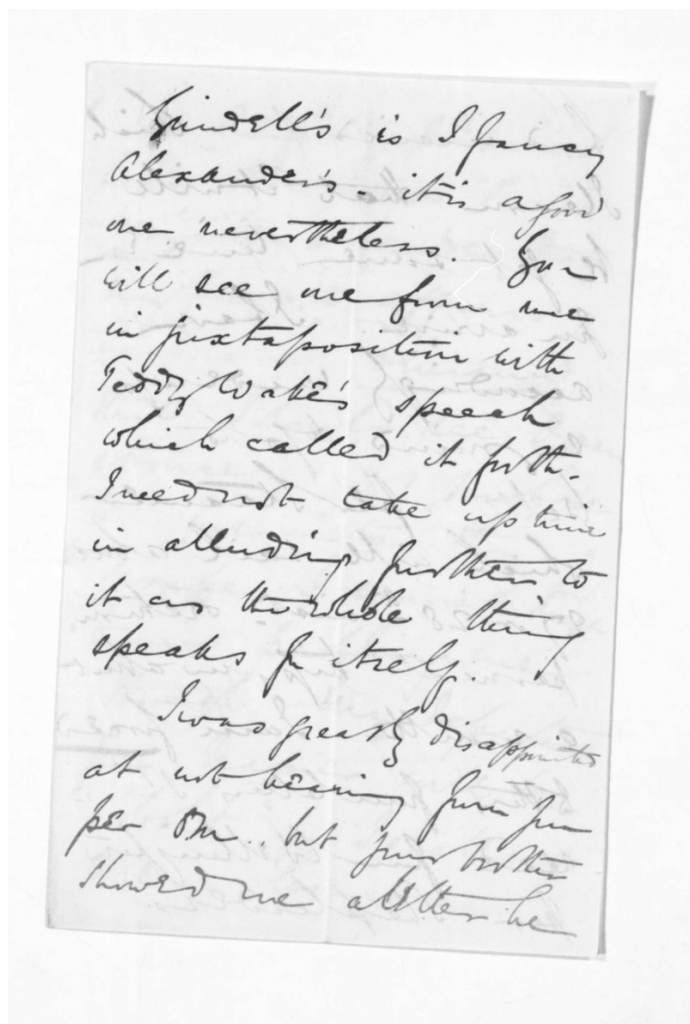 Grindell's is I fancy
Alexander's. it is a good
one nevertheless. You
will see one from me
in juxtaposition with
Teddy Wake's speech
which called it forth.
I need not take up time
in alluding further to
it as the whole thing
speaks for itself.
I was greatly disappointed
at not hearing from you
per but your brother
showed me a letter he